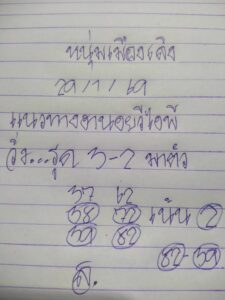 หนุ่มเมืองเลิง
29/1/69
แนวทางฮานอยวีไอพี
วิ่ง...รูด 3-2 มาตัว
37 62
38 72 เน้น 2
39 82
82-39
ส.